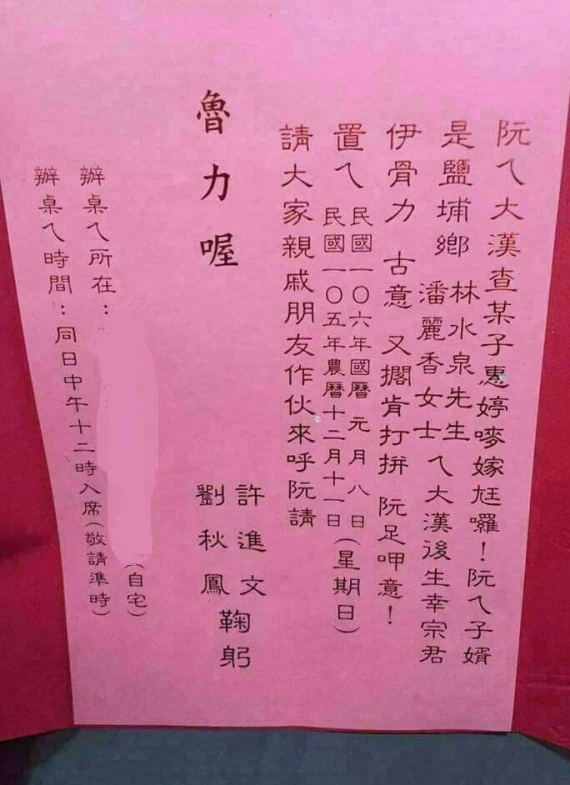 阮ㄟ大漢查某子惠婷嘜嫁尪囉！阮ㄟ子婿
是鹽埔鄉
林水泉先生
潘麗香女士
ㄟ大漢後生幸宗君
伊骨力 古意 又擱肯打拼 阮足呷意！
置ㄟ
民國一〇六年國曆 元月八日
民國一〇五年農曆十二月十一日
(星期日)
請大家親戚朋友作伙來呼阮請
許進文
劉秋鳳
鞠躬
魯力喔
辦桌ㄟ所在：
(自宅)
辦桌ㄟ時間：同日中午十二時入席(敬請準時)